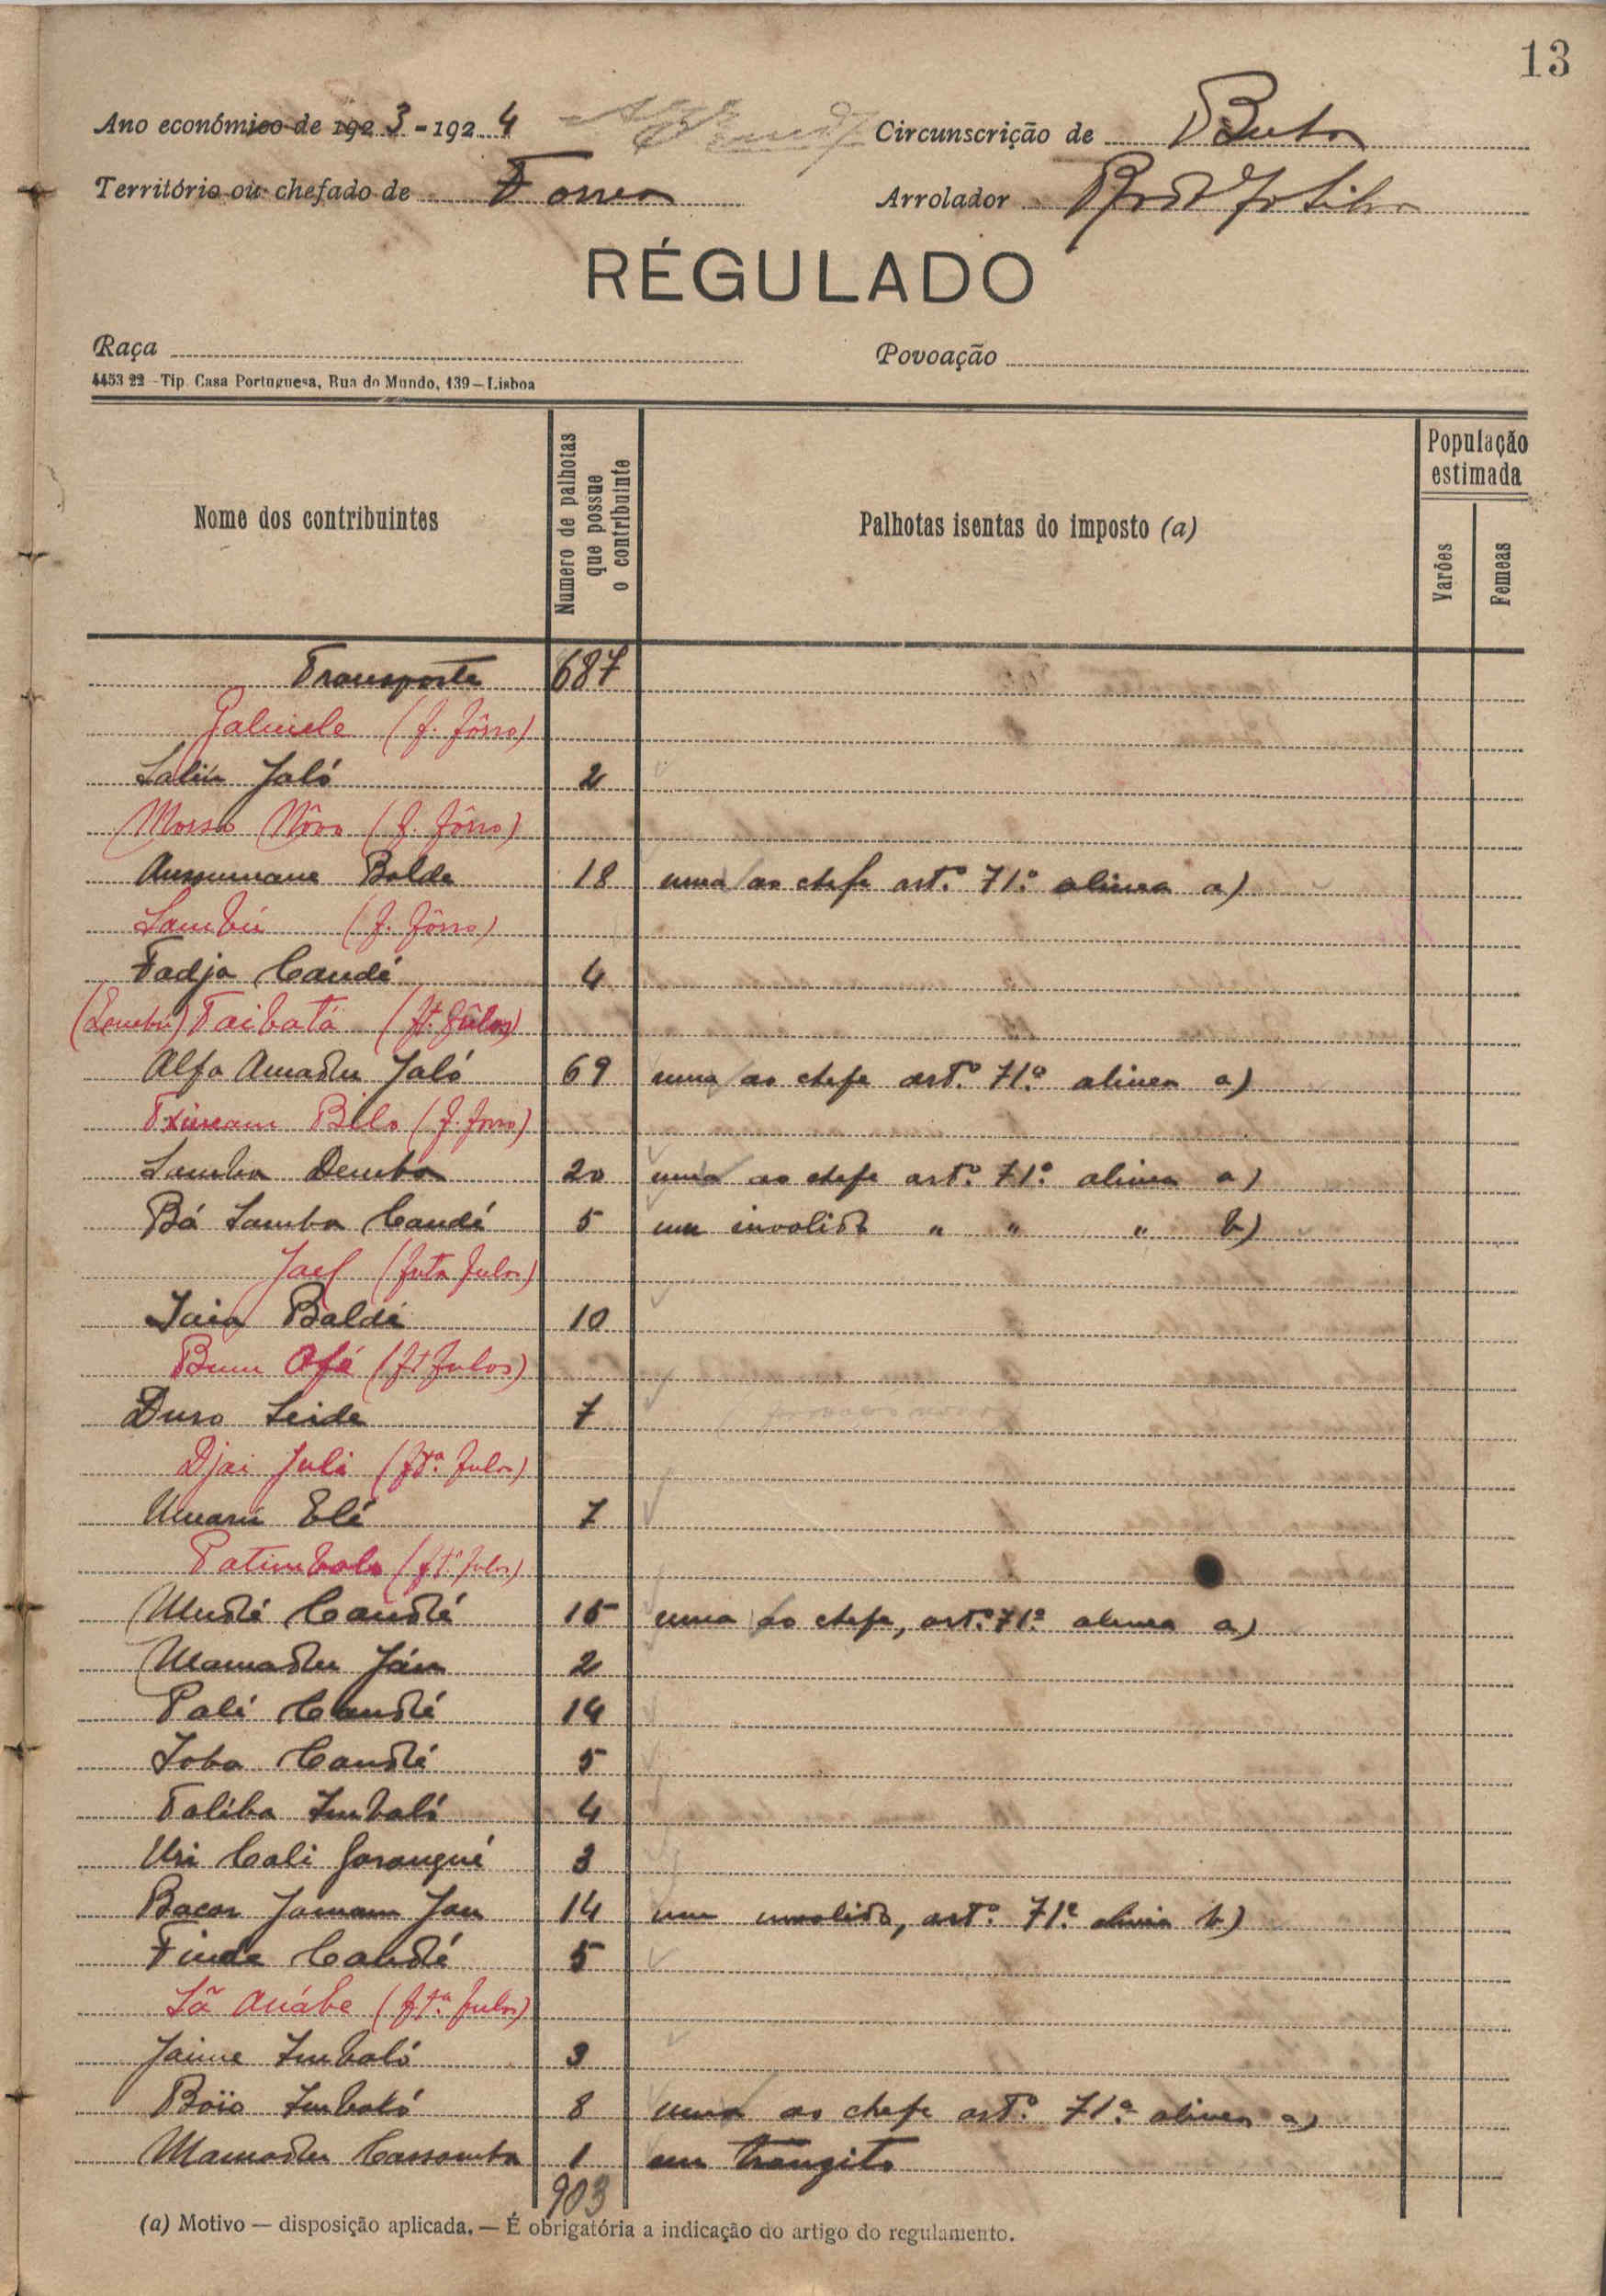 13
Ano económico de 1923-1924
Circunscrição de Buba
Território ou chefado de Forrea
Arrolador
RÉGULADO
Raça
Povoação
4453 22 - Tip. Casa Portuguesa, Rua do Mundo, 139 - Lisboa
Nome dos contribuintes
Numero de palhotas que possue o contribuinte
Palhotas isentas do imposto (a)
População estimada
Varões
Femeas
Transporte 687
(f. fôrro)
Saliu Jaló 2
(f. fôrro)
Aussumane Balde 18 uma ao chefe art.º 71.º alinea a)
Sambú (f. fôrro)
Fadja Candé 4
Taibatá
Alfa Amadu Jaló 69 uma ao chefe art.º 71.º alinea a)
Bilo (f. forro)
Samba Demba 20 uma ao chefe art.º 71.º alinea a)
Bá Samba Candé 5 um invalido " " " b)
(futa fulos)
Iaia Baldé 10
(ft fulos)
Duro Seide 7
Djai Juli (fta. fulos)
Umarú Elé 7
(ft. fulos)
Mudé Candé 15 uma ao chefe, art.º 71.º alinea a)
Mamadu 2
Palé Candé 14
Ioba Candé 5
Taliba Imbaló 4
Uri Cali 3
Bacar 14 um invalido, art.º 71.º alinea b)
Finda Candé 5
Sã Anábe (fta. fulos)
Jaime Imbaló 3
Boio Imbaló 8 uma ao chefe art.º 71.º alinea a)
Mamadu Cassamba 1 um transito
903
(a) Motivo — disposição aplicada. — É obrigatória a indicação do artigo do regulamento.